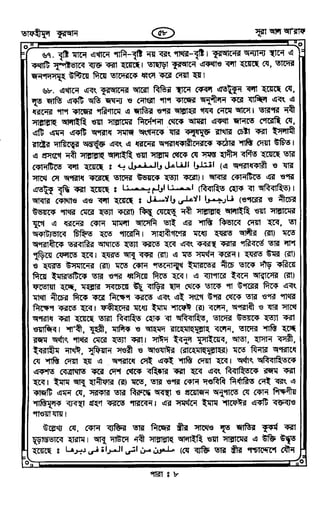 তাফহীমুল কুরআন
৫৮
সূরা আল আ'রাফ
৬৭. বৃষ্টি মানে এখানে পানি-বৃষ্টি নয় বরং পাথর-বৃষ্টি। কুরআনের অন্যান্য স্থানে এ
কথাটি সুস্পষ্টভাবে ব্যক্ত করা হয়েছে। তাছাড়া কুরআনে একথাও বলা হয়েছে যে, তাদের
জনপদসমূহ উল্টিয়ে দিয়ে তাদেরকে ধ্বংস করে দেয়া হয়।
৬৮. এখানে এবং কুরআনের আরো বিভিন্ন স্থানে কেবল এতটুকুন বলা হয়েছে যে,
লূত জাতি একটি অতি জঘন্য ও নোংরা পাপ কাজের অনুশীলন করে যাচ্ছিল এবং এ
ধরনের পাপ কাজের পরিণামে এ জাতির ওপর আল্লাহর গযব নেমে আসে। তারপর নবী
সাল্লাল্লাহু আলাইহি ওয়া সাল্লামের নির্দেশনা থেকে আমরা একথা জানতে পেরেছি যে,
এটি এমন একটি অপরাধ সমাজ অংগনকে যার কলুষমুক্ত রাখার চেষ্টা করা ইসলামী
রাষ্ট্রের দায়িত্বের অন্তর্ভুক্ত এবং এ ধরনের অপরাধকারীদেরকে কঠোর শাস্তি দেয়া উচিত।
এ প্রসংগে নবী সাল্লাল্লাহু আলাইহি ওয়া সাল্লাম থেকে যে সমস্ত হাদীস বর্ণিত হয়েছে তার
কোনটিতে বলা হয়েছে : اقتلوا الفاعل والمفعول به (এ অপরাধকারী ও যার
সাথে সে অপরাধ করেছে তাদের উভয়কে হত্যা করো)। আবার কোনটিতে এর ওপর
এতটুকু বৃদ্ধি করা হয়েছে : احصنا اولم يحصنا (বিবাহিত হোক বা অবিবাহিত)।
আবার কোথাও এও বলা হয়েছে : فارجموا الاعلى والاسفل (ওপরের ও নীচের
উভয়কে পাথর মেরে হত্যা করো) কিন্তু যেহেতু নবী সাল্লাল্লাহু আলাইহি ওয়া সাল্লামের
যুগে এ ধরনের কোন মামলা আসেনি তাই এর শাস্তি কিভাবে দেয়া হবে, তা
অকাট্যভাবে চিহ্নিত হতে পারেনি। সাহাবীগণের মধ্যে হযরত আলীর (রা) মতে
অপরাধীকে তরবারির আঘাতে হত্যা করতে হবে এবং কবরস্থ করার পরিবর্তে তার লাশ
পুড়িয়ে ফেলতে হবে। হযরত আবু বকর (রা) এ মত সমর্থন করেন। হযরত উমর (রা)
ও হযরত উসমানের (রা) মতে কোন পতনোন্মুখ ইমারতের নীচে তাকে দাঁড় করিয়ে
দিয়ে ইমারতটিকে তার ওপর ধ্বসিয়ে দিতে হবে। এ ব্যাপারে ইবনে আব্বাসের (রা)
ফতোয়া হচ্ছে, মহল্লার সবচেয়ে উঁচু বাড়ির ছাদ থেকে তাকে পা উপরের দিকে এবং
মাথা নীচের দিকে করে নিক্ষেপ করতে হবে এবং এই সংগে উপর থেকে তার ওপর পাথর
নিক্ষেপ করতে হবে। ফকীহদের মধ্যে ইমাম শাফেঈ (র) বলেন, অপরাধী ও যার সাথে
অপরাধ করা হয়েছে তারা বিবাহিত হোক বা অবিবাহিত, তাদের উভয়কে হত্যা করা
ওয়াজিব। শা'বী, যুহরী, মালিক ও আহমদ রাহেমাহুমুল্লাহু বলেন, তাদের শাস্তি হচ্ছে
রজম অর্থাৎ পাথর মেরে হত্যা করা। সাঈদ ইবনুল মুসাইয়েব, আতা, হাসান বসরী,
ইবরাহীম নাখঈ, সুফিয়ান সওরী ও আওযাঈর (রাহেমাহুমুল্লাহু) মতে যিনার অপরাধে
যে শাস্তি দেয়া হয় এ অপরাধের সেই একই শাস্তি দেয়া হবে। অর্থাৎ অবিবাহিতকে
একশত বেত্রাঘাত করে দেশ থেকে বহিষ্কার করা হবে এবং বিবাহিতকে রজম করা
হবে। ইমাম আবু হানীফার (র) মতে, তার ওপর কোন দণ্ডবিধি নির্ধারিত নেই বরং এ
কাজটি এমন যে, সরকার তার বিরুদ্ধে অবস্থা ও প্রয়োজন অনুপাতে যে কোন শিক্ষণীয়
শাস্তিমূলক ব্যবস্থা গ্রহণ করতে পারবেন। এর সমর্থনে ইমাম শাফেঈর একটি বক্তব্যও
পাওয়া যায়।
উল্লেখ্য যে, কোন ব্যক্তির তার নিজের স্ত্রীর সাথেও লূত জাতির কুকর্ম করা
চূড়ান্তভাবে হারাম। আবু দাউদে নবী সাল্লাল্লাহু আলাইহি ওয়া সাল্লামের এ উক্তি উদ্ধৃত
হয়েছে : ملعون من اتى المرأة فى دبرها (যে ব্যক্তি তার স্ত্রীর পশ্চাদ্দেশে যৌন
পারা : ৮